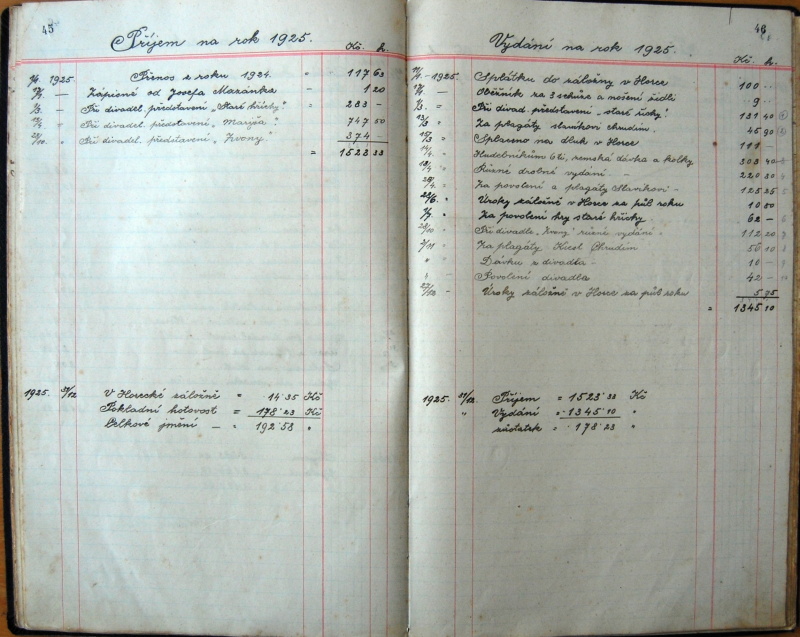 45
Příjem na rok 1925.
Kč. h.
1/1. 1925. Přenos z roku 1924. " 117 63
— Zápisné od Josefa Mazánka — 1 20
1/3. — Při divadel. představení „Staré hříchy" — 283 —
— Při divadel. představení „Maryša" — 747 50
28/10. — Při divadel. představení „Zvony" 374 —
= 1523 33
1925. 31/12 V Horecké záložně = 14.35 Kč
Pokladní hotovost = 178.23 Kč
Celkové jmění — = 192.58 "
46
Vydání na rok 1925.
Kč. h.
— 1925. Splátku do záložny v Horce 100 —
Oběžník za 3 schůze a nošení židlí 9 —
Při divad. představení „staré hříchy" 131 40
Za plagáty slavíkovi chrudim. 45 90
Splaceno na dluh v Horce 111 —
14/4. Hudebníkům Oti, zemská dávka a kolky 303 40
18/4 Různé drobné vydání. — 220 30
28/4. Za povolení a plagáty Slavíkovi — 125 25
22/6. Úroky záložně v Horce za půl roku 10 80
Za povolení hry staré hříchy. 62 —
28/10 Při divadle „Zvony" různé vydání — 112 20
2/11 Za plagáty Chrudim 50 10
" Dávku z divadla — 10 —
" Povolení divadla 42 —
— Úroky záložně v Horce za půl roku 5 75
= 1345 10
1925. 31/12. Příjem = 1523.33 Kč
" Vydání = 1345.10 "
zůstatek = 178.23 "